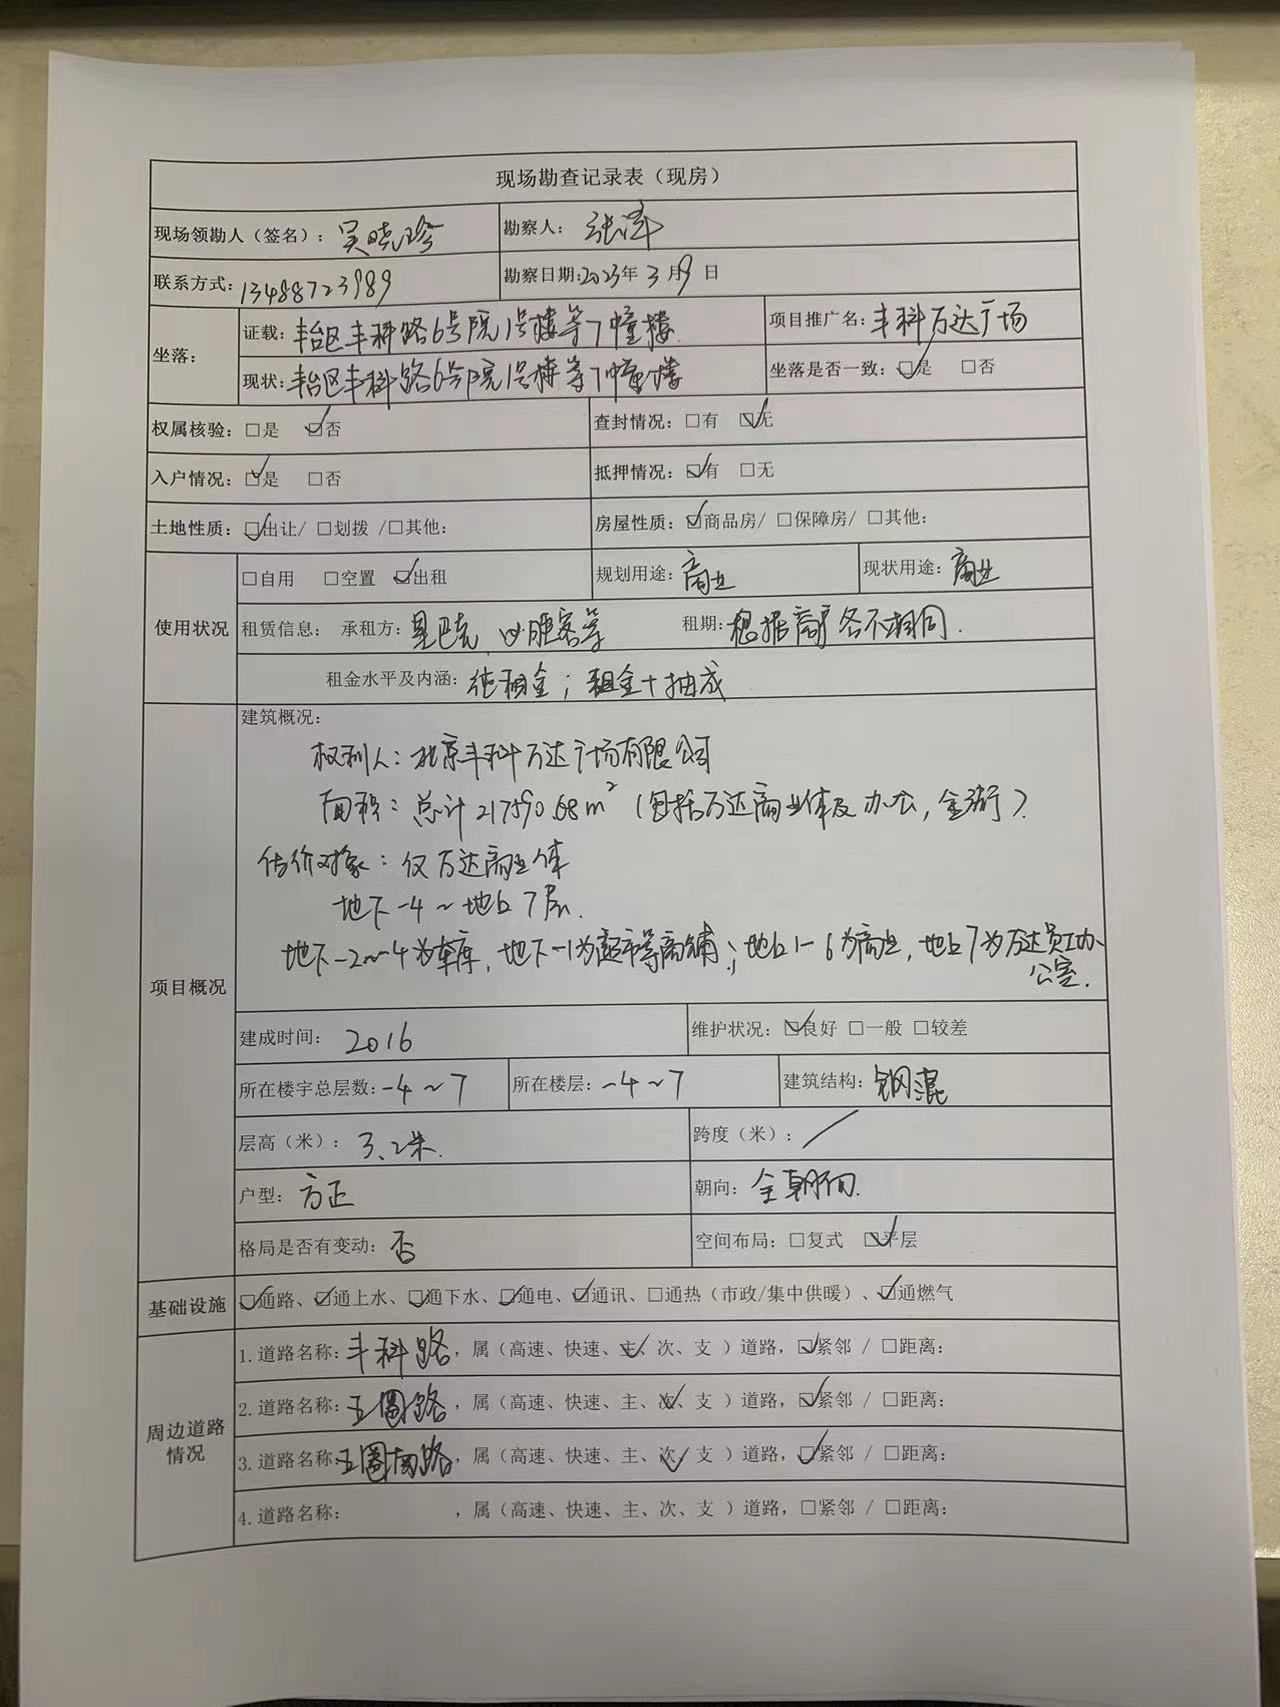 现场勘查记录表（现房）
现场领勘人（签名）：吴晓珍 勘察人：张泽
联系方式：13488723989 勘察日期：2023年3月9日
坐落： 证载：丰台区丰科路6号院1号楼等7幢楼 项目推广名：丰科万达广场
现状：丰台区丰科路6号院1号楼等7幢楼 坐落是否一致：☑是 □否
权属核验：□是 ☑否 查封情况：□有 ☑无
入户情况：☑是 □否 抵押情况：☑有 □无
土地性质：☑出让/ □划拨 /□其他： 房屋性质：☑商品房/ □保障房/ □其他：
使用状况 □自用 □空置 ☑出租 规划用途：商业 现状用途：商业
租赁信息： 承租方：星巴克、必胜客等 租期：根据商户各不相同.
租金水平及内涵：纯租金；租金+抽成
项目概况 建筑概况：
权利人：北京丰科万达广场有限公司
面积：总计217590.68m²（包括万达商业体及办公，金街）
估价对象：仅万达商业体
地下-4～地上7层.
地下-2～-4为车库，地下-1为超市等商铺；地上1-6为商业，地上7为万达员工办
公室.
建成时间：2016 维护状况：☑良好 □一般 □较差
所在楼宇总层数：-4～7 所在楼层：-4～7 建筑结构：钢混
层高（米）：3.2米. 跨度（米）：/
户型：方正 朝向：全朝向.
格局是否有变动：否 空间布局：□复式 ☑平层
基础设施 ☑通路、☑通上水、☑通下水、☑通电、☑通讯、□通热（市政/集中供暖）、☑通燃气
周边道路情况 1.道路名称：丰科路，属（高速、快速、主✓、次、支 ）道路，☑紧邻 / □距离：
2.道路名称：五圈路，属（高速、快速、主、次✓、支 ）道路，☑紧邻 / □距离：
3.道路名称：五圈南路，属（高速、快速、主、次✓、支 ）道路，☑紧邻 / □距离：
4.道路名称： ，属（高速、快速、主、次、支 ）道路，□紧邻 / □距离：